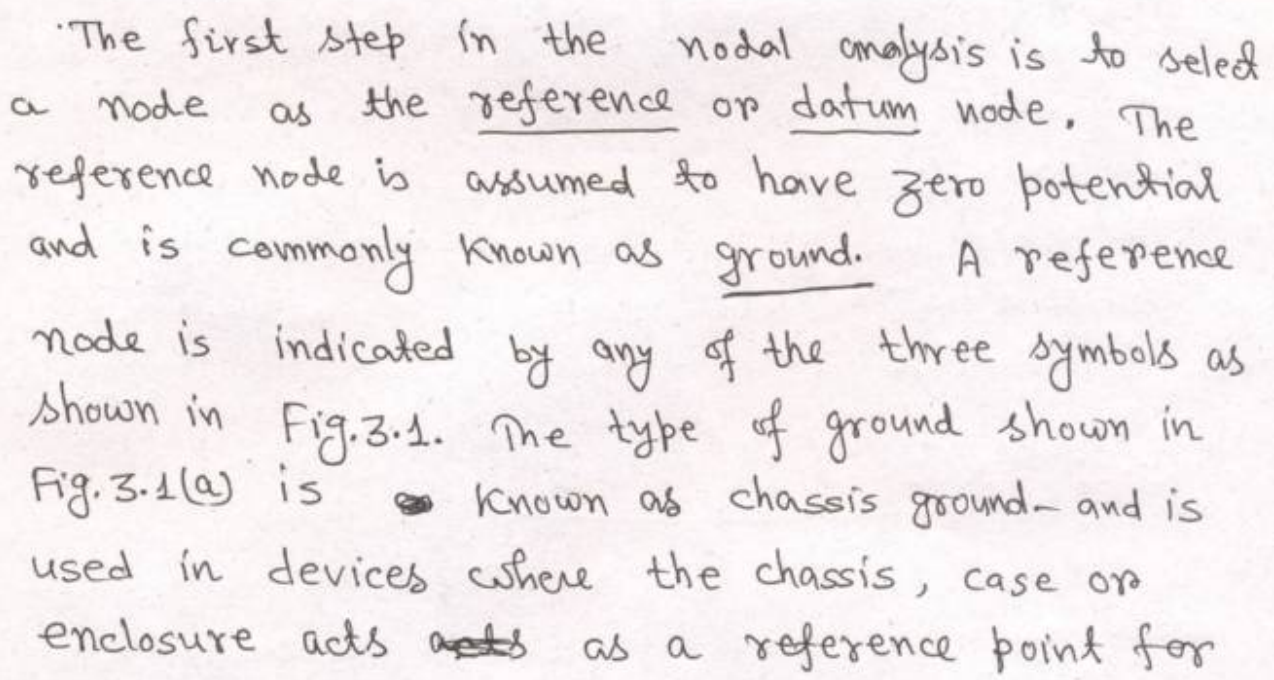 The first step in the nodal analysis is to select
a node as the reference or datum node. The
reference node is assumed to have zero potential
and is commonly known as ground. A reference
node is indicated by any of the three symbols as
shown in Fig.3.1. The type of ground shown in
Fig.3.1(a) is known as chassis ground and is
used in devices where the chassis, case or
enclosure acts as a reference point for